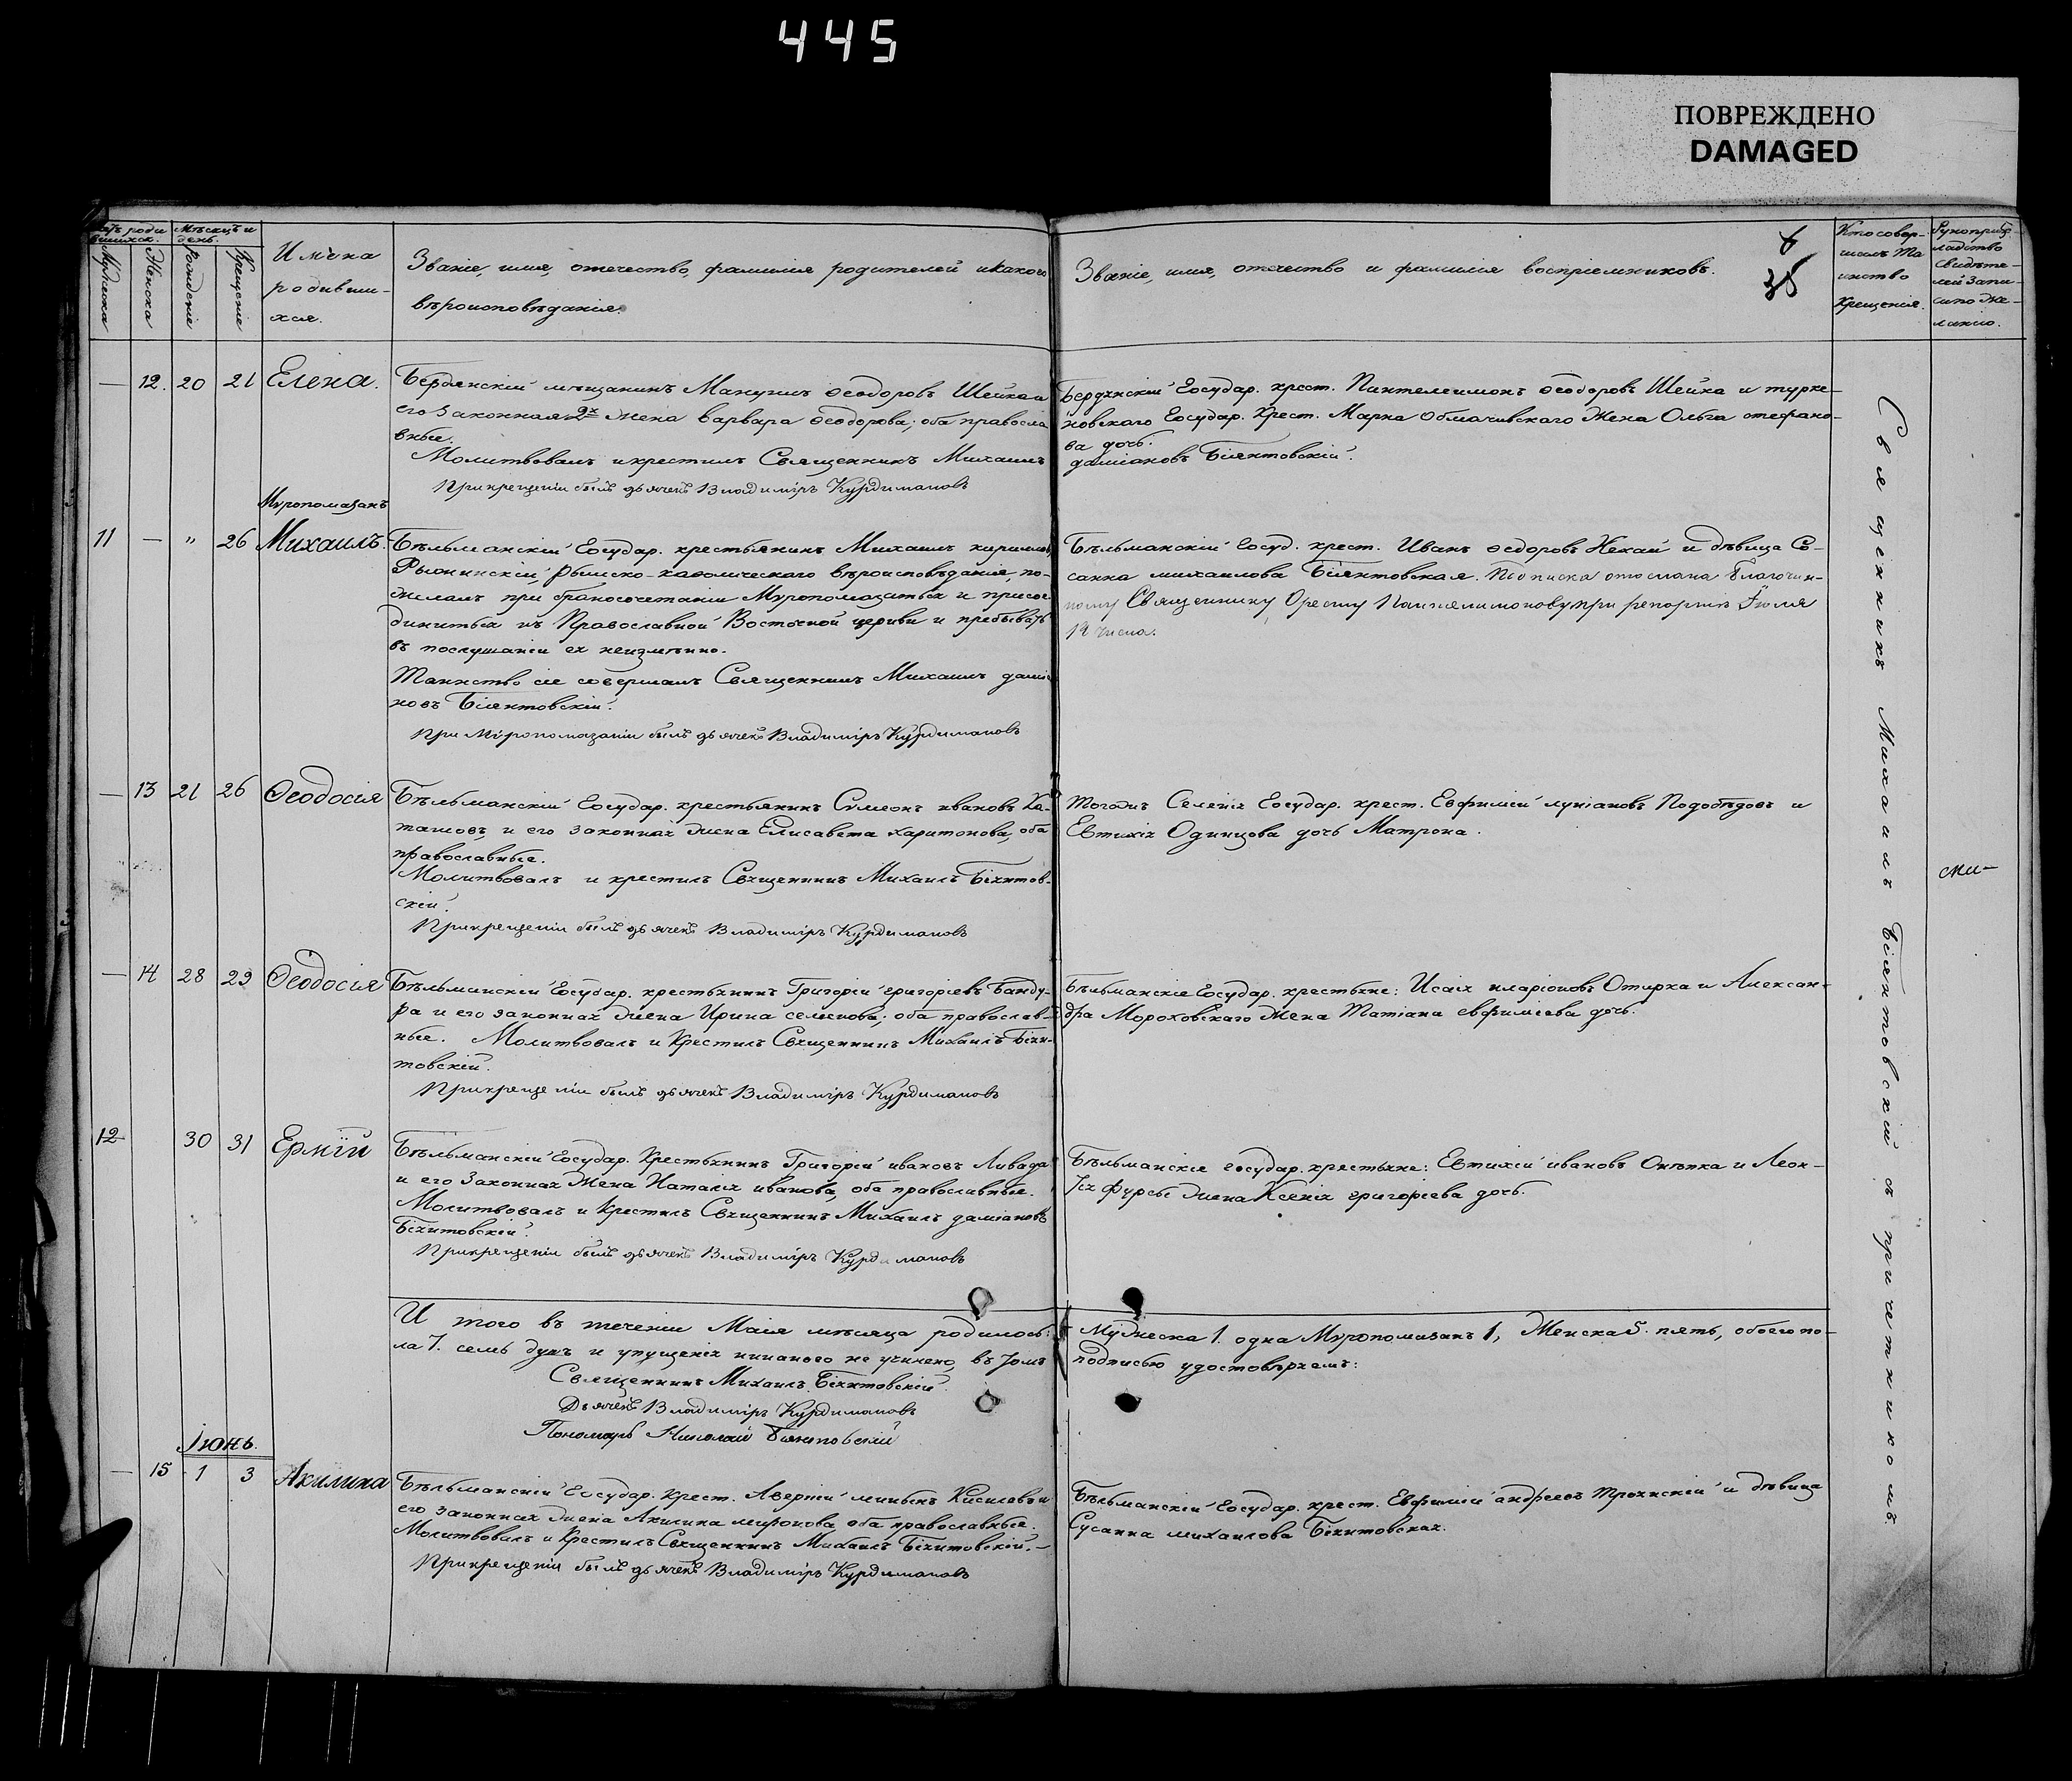 445
ПОВРЕЖДЕНО
DAMAGED
Мѣсяцъ и
день.
Мужеска
Женска
Рожденіе
Крещеніе
Имена
родивши-
хся.
Званіе, имя, отечество, фамилія родителей и какого
вѣроисповѣданія.
Званіе, имя, отечество и фамилія воспріемниковъ.
6
38
Кто совер-
шалъ Та
инство
Крещенія.
Рукоприк-
ладство
свидѣте-
лей запи-
си по же-
ланію.
— 12. 20 21 Елена.
Бердянскій мѣщанинъ Мануилъ Ѳеодоровъ Шейка и
его законная 2я жена варвара Ѳеодорова; оба правосла
вные.
Молитвовалъ и крестилъ Священникъ Михаилъ
При крещеніи былъ дьячекъ Владиміръ Курдимановъ
Бердянскій Государ. крест. Пантелеимонъ Ѳеодоровъ Шейка и турке-
новскаго Государ. Крест. Марка Обмачивскаго Жена Ольга стефано-
ва дочь.
даміановъ Біянтовскій.
Муропомазанъ
11 — " 26 Михаилъ.
Бѣльманскій Государ. крестьянинъ Михаилъ кириловъ
Рыжинскій, Рымско-каѳолическаго вѣроисповѣданія, по-
желалъ при бракосочетаніи Муропомазаться и присое
диниться къ Православной Восточной церкви и пребывать
въ послушаніи ея неизмѣнно.
Таинство сіе совершалъ Священникъ Михаилъ даміа
новъ Біянтовскій.
При Муропомазаніи былъ дьячекъ Владиміръ Курдимановъ
Бѣльманскій Госуд. крест. Иванъ Ѳедоровъ Некай и дѣвица Со-
санна михаилова Біянтовская. Подписка отослана Благочин-
ному Священнику Оресту Пантелимонову при репортѣ Іюля
12 числа.
— 13 21 26 Ѳеодосія
Бѣльманскій Государ. крестьянинъ Симеонъ ивановъ Ка-
ташовъ, и его законная жена Елисавета харитонова, оба
православные.
Молитвовалъ и крестилъ Священникъ Михаилъ Біянтов-
скій.
При крещеніи былъ дьячекъ Владиміръ Курдимановъ
Тогожъ Селенія Государ. крест. Евфимій лукіановъ Подобѣдовъ и
Евтихія Одинцова дочь Матрона.
сми-
— 14 28 29 Ѳеодосія
Бѣльманскій Государ. крестьянинъ Григорій григоріевъ Банду-
ра и его законная жена Ирина семенова; оба православ-
ные. Молитвовалъ и Крестилъ Священникъ Михаилъ Біян-
товскій.
При крещеніи былъ дьячекъ Владиміръ Курдимановъ
Бѣльманскіе Государ. крестьяне: Исаія иларіоновъ Отирка и Алексан-
дра Мороховскаго Жена Татіана евфиміева дочь.
12 30 31 Ермій
Бѣльманскій Государ. Крестьянинъ Григорій ивановъ Ливада
и его Законная Жена Наталія иванова, оба православные.
Молитвовалъ и крестилъ Священникъ Михаилъ даміановъ
Біянтовскій.
При крещеніи былъ дьячекъ Владиміръ Курдимановъ
Бѣльманскіе государ. крестьяне: Евтихій ивановъ Онѣпка и Леон-
тія Фурсы жена Ксенія григоріева дочь.
И того въ теченіи Маія мѣсяца родилось:
Мужеска 1. одна Муропомазанъ 1, Женска 5. пять, обоего по-
ла 7. семь душъ и упущенія никакого не учинено, въ томъ
подписью удостовѣряемъ:
Священникъ Михаилъ Біянтовскій.
Дьячекъ Владиміръ Курдимановъ
Пономарь Николай Біянтовскій
Іюнь.
— 15 1 3 Акилина
Бѣльманскій Государ. Крест. Аверкій минынъ Киселевъ и
его законная жена Акилина миронова, оба православные.
Молитвовалъ и Крестилъ Священникъ Михаилъ Біянтовскій.—
При крещеніи былъ дьячекъ Владиміръ Курдимановъ
Бѣльманскій Государ. крест. Евфимій андреевъ Троянскій и дѣвица
Сусанна михаилова Біянтовская.
Священникъ Михаилъ Біянтовскій съ причетникомъ.